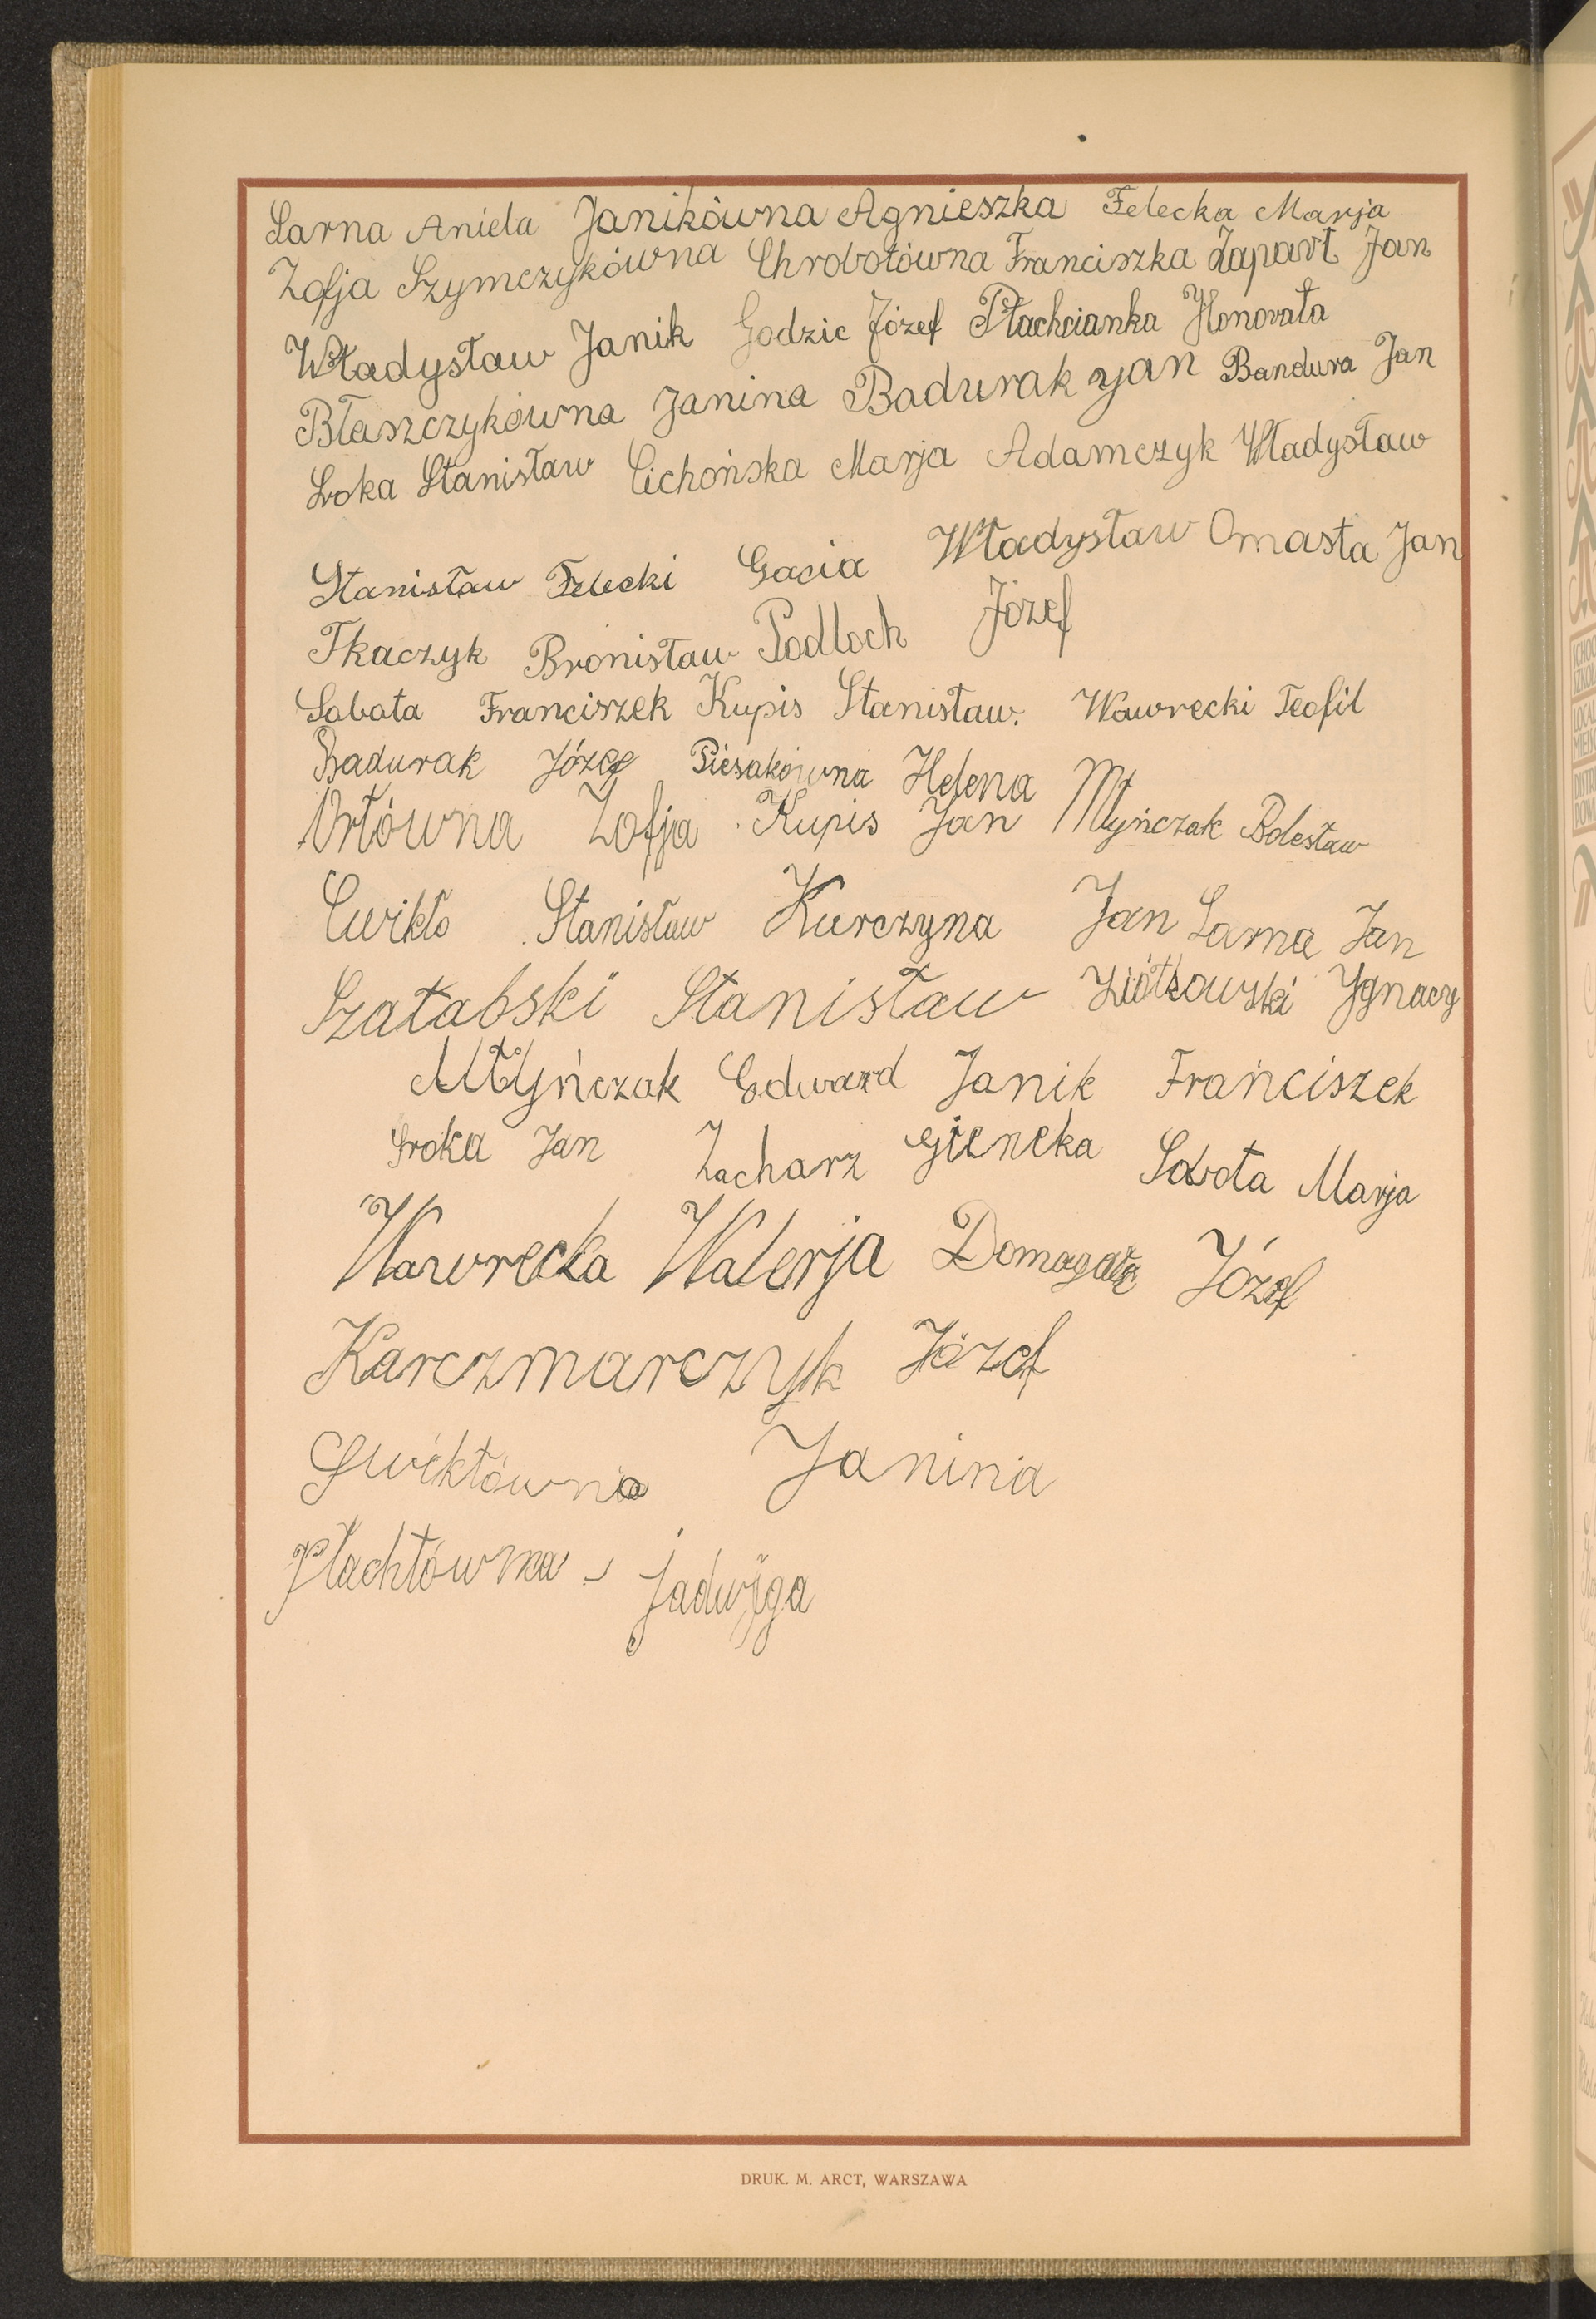 Sarna Aniela Janikówna Agnieszka Felecka Marja
Zofja Szymczykówna Chrobotówna Franciszka Zapart Jan
Władysław Janik Godzic Józef Płachcianka Honorata
Błaszczykówna Janina Badurak Yan Bandura Jan
Sroka Stanisław Cichońska Marja Adamczyk Władysław
Stanisław Felecki Gacia Władysław Omasta Jan
Tkaczyk Bronisław Podloch Józef
Sabata Franciszek Kupis Stanisław. Wawrecki Teofil
Badurak Józef Piesakówna Helena
Ortówna Zofja Kupis Jan Młyńczak Bolesław
Cwikło Stanisław Kurczyna Jan Sarna Jan
Szatabski Stanisław Ziółkowski Ygnacy
Młyńczak Edward Janik Franciszek
Sroka Jan Zacharz Gieneka Sobota Marja
Wawrecka Walerja Domagała Józef
Karczmarczyk Józef
Cwikłówna Janina
Płachtówna Jadwiga
DRUK. M. ARCT, WARSZAWA